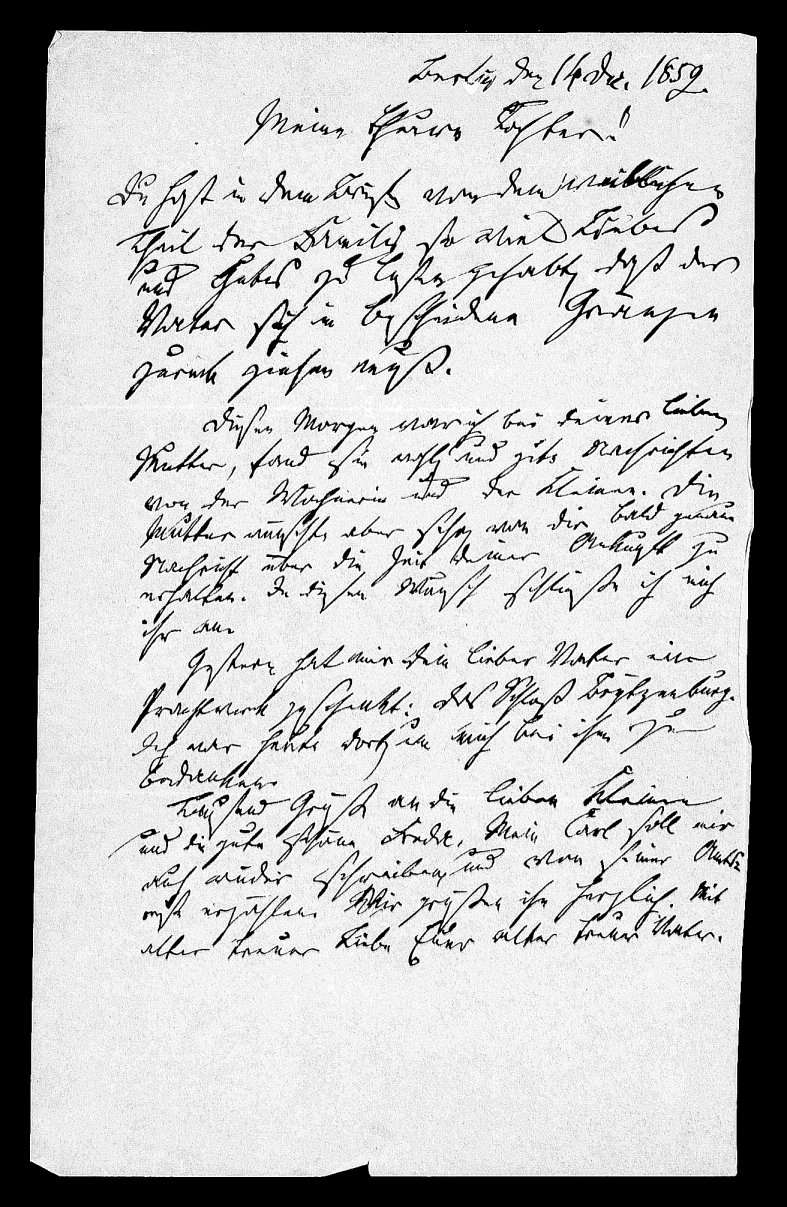 Berlin den 14 Dec. 1859.
Meine theure Tochter!
Du hast in dem Brief von dem weiblichen
Theil der Familie so viel Liebes
und Gutes zu lesen gehabt, daß der
Vater sich in bescheidene Gränzen
zurück ziehen muß.
Diesen Morgen war ich bei deiner lieben
Mutter, fand sie wohl, und gute Nachrichten
von der Wöchnerin und der Kleinen. Die
Mutter wünscht aber schon von dir bald genaue
Nachricht über die Zeit deiner Ankunft zu
erhalten. In diesem Wunsch schließe ich mich
ihr an.
Gestern hat mir dein lieber Vater ein
Prachtwerk geschenkt: das Schloß Boytzenburg.
Ich war heute dort, um mich bei ihm zu
bedanken.
Tausend Grüße an die lieben Kleinen
und die gute Mein Carl soll mir
auch wieder schreiben, und von seiner
erzählen. Wir grüßen ihn herzlich. Mit
alter treuer Liebe Euer alter treuer Vater.